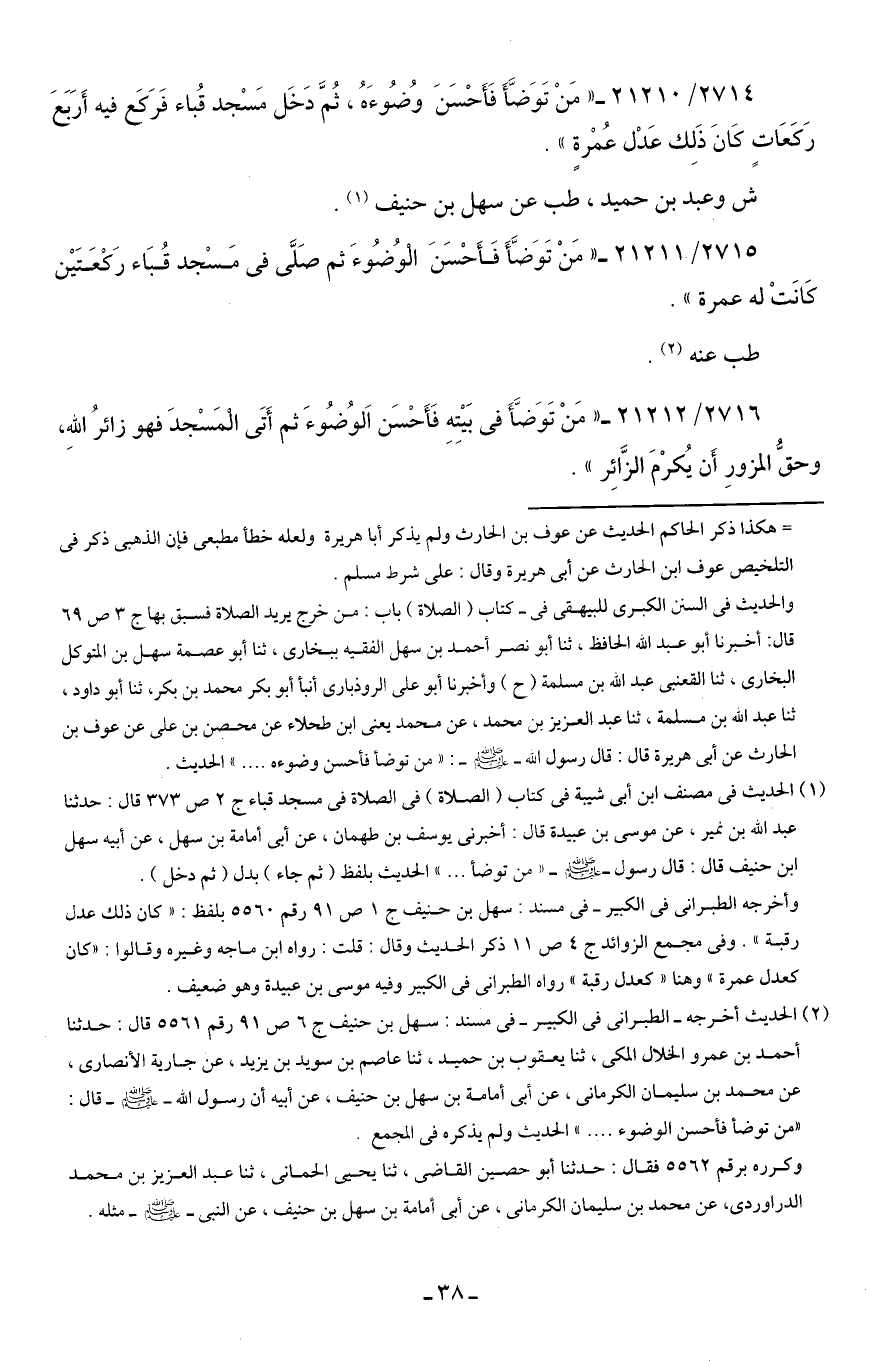 ٢٧١٤/ ٢١٢١٠ ـ « مَنْ تَوَضَّأَ فَأَحْسَنَ وُضُوءَهُ ، ثُمَّ دَخَل مَسْجد قُباء فَركَع فيه أَرَبَعَ
رَكَعَاتٍ كَانَ ذَلِك عَدْل عُمْرةٍ » .
ش وعبد بن حميد ، طب عن سهل بن حنيف (١) .
٢٧١٥/ ٢١٢١١ ـ « مَنْ تَوَضَّأَ فَأَحْسَنَ الْوُضُوءَ ثم صلَّى فى مَسْجد قُبَاء رَكْعَتَيْن
كَانَتْ له عمرة » .
طب عنه (٢) .
٢٧١٦/ ٢١٢١٢ ـ « مَنْ تَوَضَّأَ فى بَيْتِهِ فَأَحْسَن الَوُضُوءَ ثم أَتَى الْمَسْجدَ فهو زائرُ اللهِ،
وحقُّ المزورِ أَن يُكرْمَ الزَّائِر » .
= هكذا ذكر الحاكم الحديث عن عوف بن الحارث ولم يذكر أبا هريرة ولعله خطأ مطبعى فإن الذهبى ذكر فى
التلخيص عوف ابن الحارث عن أبى هريرة وقال : على شرط مسلم .
والحديث فى السنن الكبرى للبيهقى فى ـ كتاب ( الصلاة ) باب : من خرج يريد الصلاة فسبق بها ج ٣ ص ٦٩
قال: أخبرنا أبو عبد الله الحافظ ، ثنا أبو نصر أحمد بن سهل الفقيه ببخارى ، ثنا أبو عصمة سهل بن المتوكل
البخارى ، ثنا القعنبى عبد الله بن مسلمة ( ح ) وأخبرنا أبو على الروذبارى أنبأ أبو بكر محمد بن بكر، ثنا أبو داود ،
ثنا عبد الله بن مسلمة ، ثنا عبد العزيز بن محمد ، عن محمد يعنى ابن طحلاء عن محصن بن على عن عوف بن
الحارث عن أبى هريرة قال : قال رسول الله ـ ﷺ ـ : « من توضأ فأحسن وضوءه .... » الحديث .
(١) الحديث فى مصنف ابن أبى شيبة فى كتاب ( الصلاة ) فى الصلاة فى مسجد قباء ج ٢ ص ٣٧٣ قال : حدثنا
عبد الله بن نمير ، عن موسى بن عبيدة قال : أخبرنى يوسف بن طهمان ، عن أبى أمامة بن سهل ، عن أبيه سهل
ابن حنيف قال : قال رسول ـ ﷺ ـ « من توضأ ... » الحديث بلفظ ( ثم جاء ) بدل ( ثم دخل ) .
وأخرجه الطبرانى فى الكبير ـ فى مسند : سهل بن حنيف ج ١ ص ٩١ رقم ٥٥٦٠ بلفظ : « كان ذلك عدل
رقبة » . وفى مجمع الزوائد ج ٤ ص ١١ ذكر الحديث وقال : قلت : رواه ابن ماجه وغيره وقالوا : «كان
كعدل عمرة » وهنا « كعدل رقبة » رواه الطبرانى فى الكبير وفيه موسى بن عبيدة وهو ضعيف .
(٢) الحديث أخرجه ـ الطبرانى فى الكبير ـ فى مسند : سهل بن حنيف ج ٦ ص ٩١ رقم ٥٥٦١ قال : حدثنا
أحمد بن عمرو الخلال المكى ، ثنا يعقوب بن حميد ، ثنا عاصم بن سويد بن يزيد ، عن جارية الأنصارى ،
عن محمد بن سليمان الكرمانى ، عن أبى أمامة بن سهل بن حنيف ، عن أبيه أن رسول الله ـ ﷺ ـ قال :
«من توضأ فأحسن الوضوء .... » الحديث ولم يذكره فى المجمع .
وكرره برقم ٥٥٦٢ فقال : حدثنا أبو حصين القاضى ، ثنا يحيى الحمانى ، ثنا عبد العزيز بن محمد
الدراوردى، عن محمد بن سليمان الكرمانى ، عن أبى أمامة بن سهل بن حنيف ، عن النبى ـ ﷺ ـ مثله .
ـ ٣٨ ـ